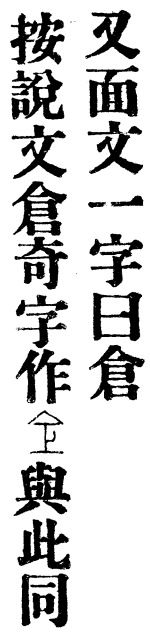 又面文一字曰倉
按說文倉奇字作仺與此同